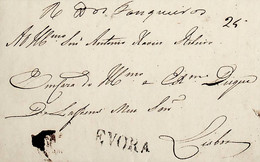 R. Dos Fanqueiros
25
Al Illmo Snr Antonio Xavier Ribeiro
Em Casa do Illmo e Exmo Duque
De Lafoens Meu Snr
EVORA
Lisboa